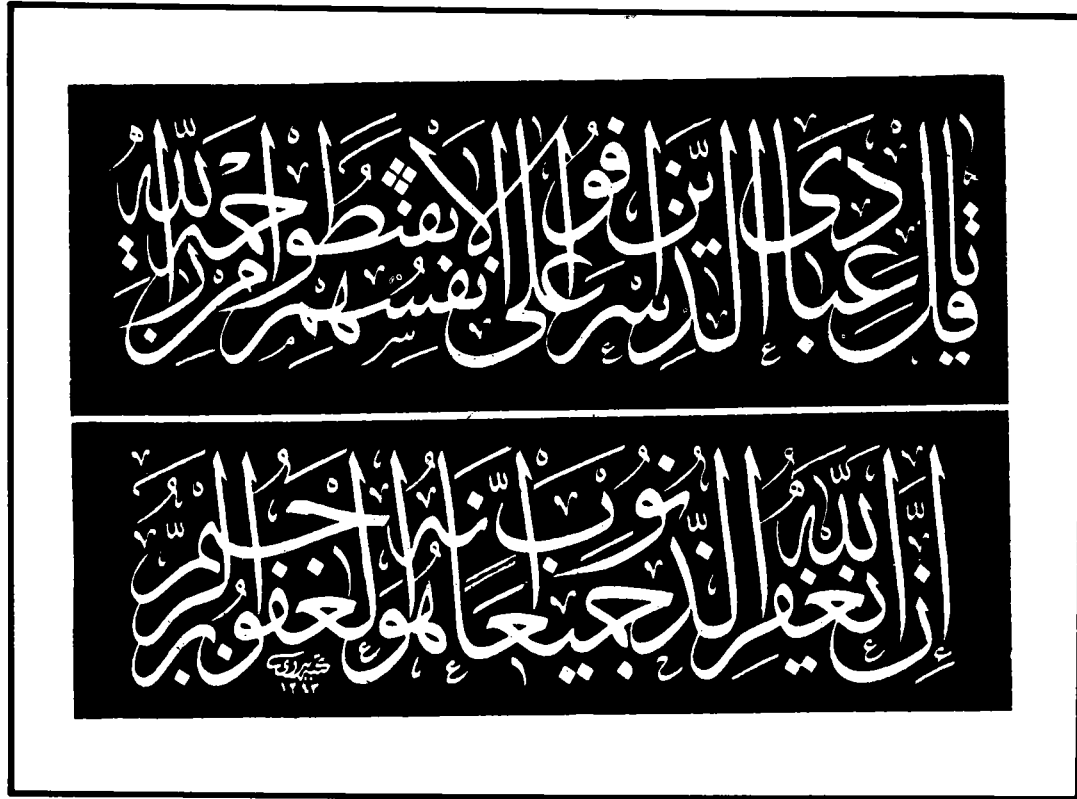 قل يا عبادي الذين اسرفوا على انفسهم لا تقنطوا من رحمة الله
ان الله يغفر الذنوب جميعا انه هو الغفور الرحيم
١٢٩٣